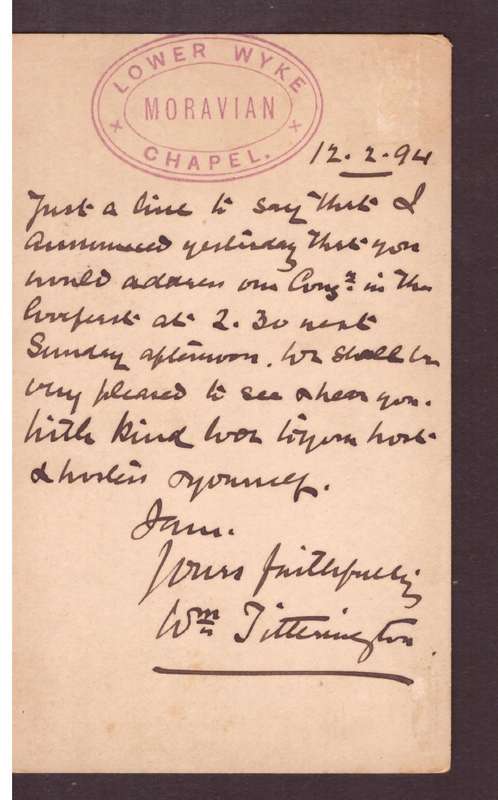 LOWER WYKE
MORAVIAN
CHAPEL.
12.2.94
Just a line to say that I
announced yesterday that you
would address our Congn. in the
at 2.30 next
Sunday afternoon. We shall be
very pleased to see & hear you.
With kind to your host
& hostess & yourself.
I am.
Yours faithfully
Wm Titterington